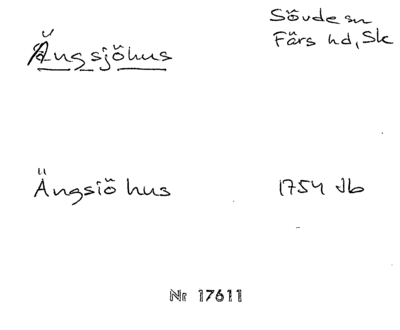 Ängsjöhus
Sövde sn
Färs hd, Sk
Ängsiö hus
1754 Jb
Nr 17611